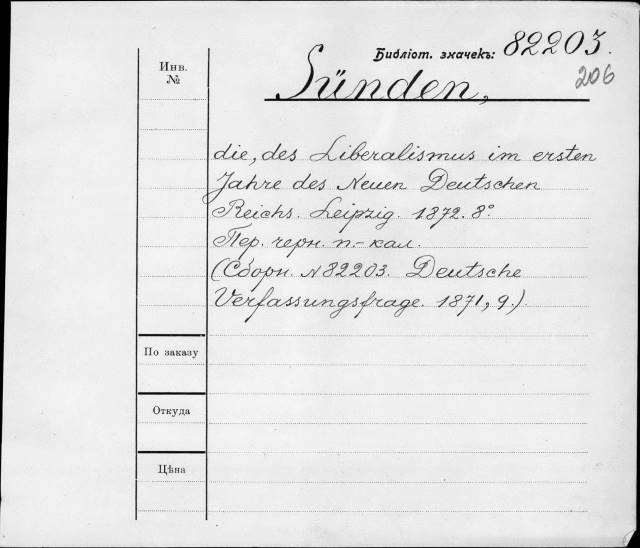 Инв.
№
Библіот. значекъ: 82203.
206
Sünden,
die, des Liberalismus im ersten
Jahre des Neuen Deutschen
Reichs. Leipzig. 1872. 8°
Пер. черн. п.-кал.
(Сборн. № 82203. Deutsche
Verfassungsfrage. 1871, 9.)
По заказу
Откуда
Цѣна